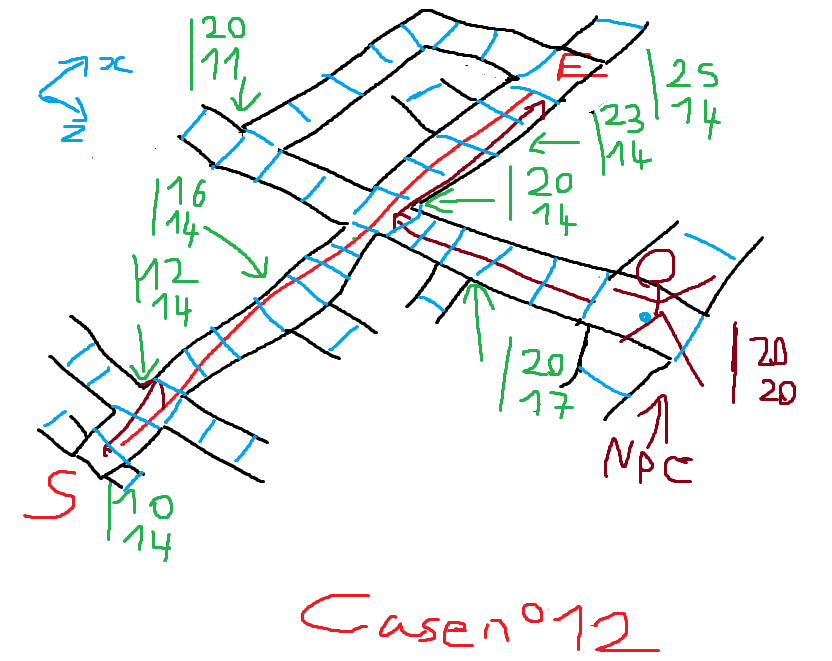 20
11
x
z
E
25
14
23
14
20
14
16
14
12
14
20
17
20
20
NPC
S
10
14
Case n° 12